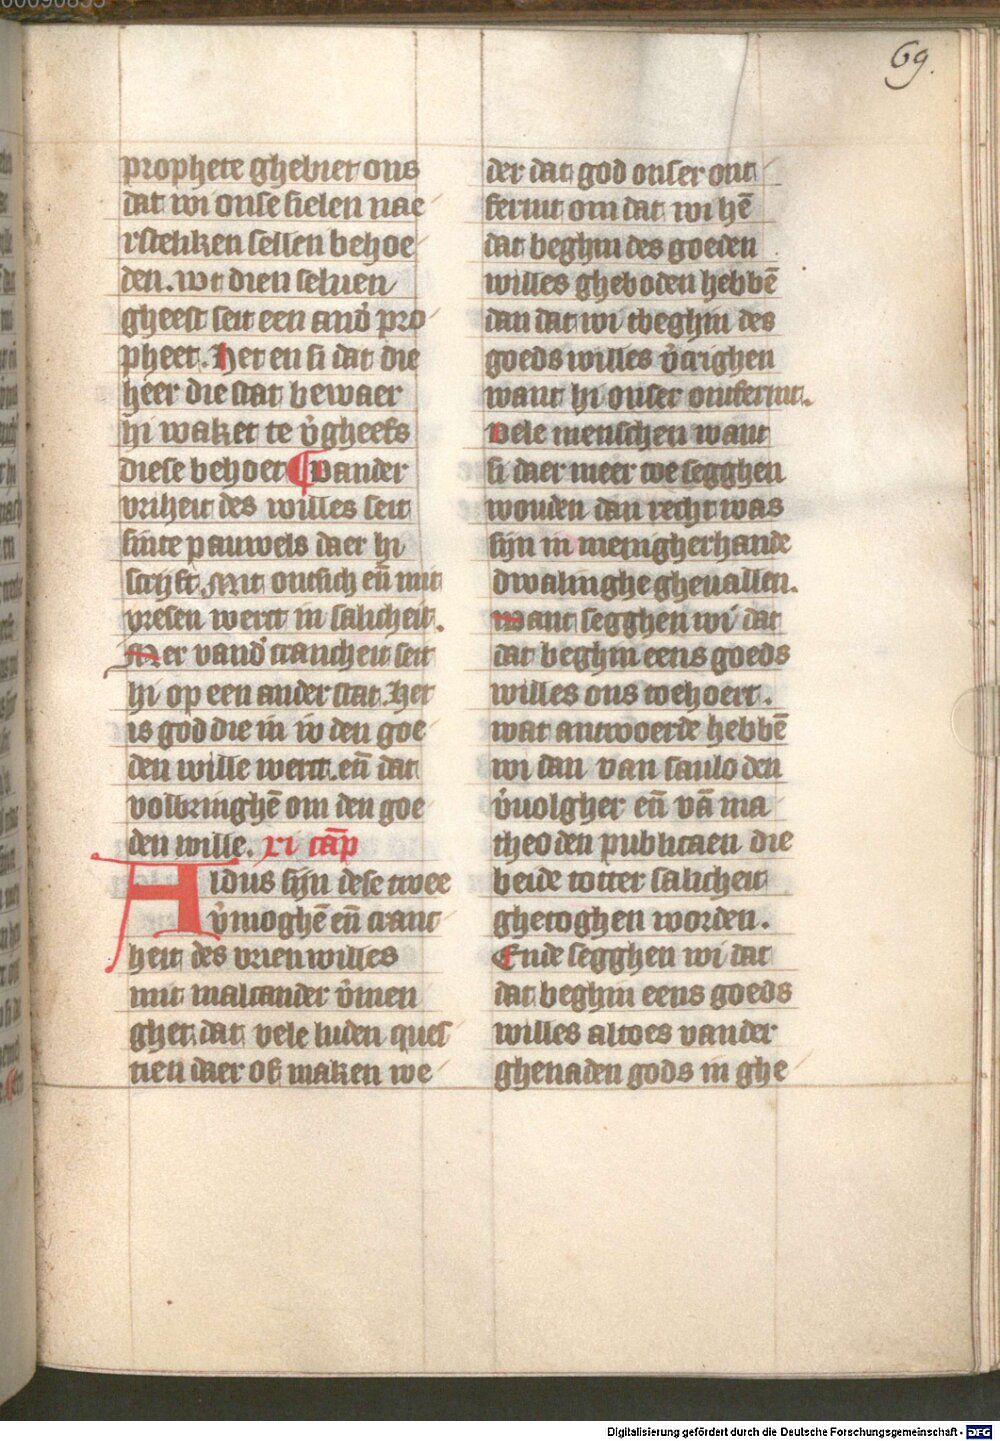 69.
prophete ghebiet ons
dat wi onse sielen nae
rsteliken sellen behoe
den. wt dien seluen
gheest seit een and̉ pro
pheet. Het en si dat die
heer die stat bewaer
hi waket te v̉gheefs
diese behoet ¶ vander
vriheit des willes seit
sinte pauwels daer hi
scrijft. Mit ontsich en̄ mit
vresen werct in salicheit.
Mer vand̉ crancheit seit
hi op een ander stat. Het
is god die in v̄ den goe
den wille werct. en̄ dat
volbringhē om den goe
den wille. xi cap̄
Aldus sijn dese twee
v̉moghē en̄ cranc
heit des vrien willes
mit malcander v̉men
ghet. dat vele luden ques
tien daer of maken we
der dat god onser ont
fermt om dat wi hē
dat beghin des goeden
willes gheboden hebbē
dan dat wi tbeghin des
goeds willes v̉crighen
want hi onser ontfermt.
vele menschen want
si daer meer toe segghen
wouden dan recht was
sijn in menigherhande
dwalinghe gheuallen.
want segghen wi dat
dat beghin eens goeds
willes ons toehoert.
wat antwoerde hebbē
wi dan van saulo den
v̉uolgher en̄ vā ma
theo den publicaen die
beide totter salicheit
ghetoghen worden.
Ende segghen wi dat
dat beghin eens goeds
willes altoes vander
ghenaden gods in ghe
Digitalisierung gefördert durch die Deutsche Forschungsgemeinschaft - DFG